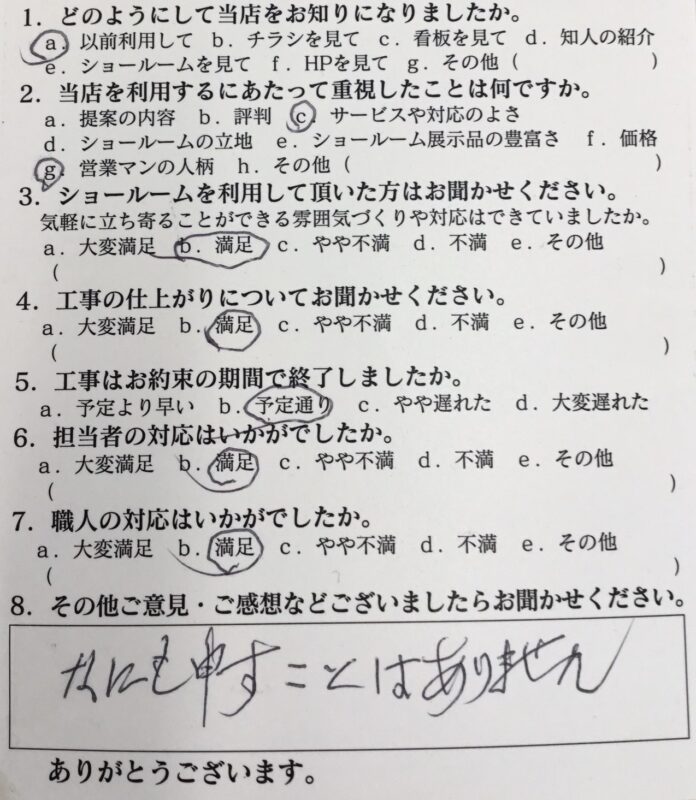 1．どのようにして当店をお知りになりましたか。
a．以前利用して b．チラシを見て c．看板を見て d．知人の紹介
e．ショールームを見て f．HPを見て g．その他（　　　）
2．当店を利用するにあたって重視したことは何ですか。
a．提案の内容 b．評判 c．サービスや対応のよさ
d．ショールームの立地 e．ショールーム展示品の豊富さ f．価格
g．営業マンの人柄 h．その他（　　　）
3．ショールームを利用して頂いた方はお聞かせください。
気軽に立ち寄ることができる雰囲気づくりや対応はできていましたか。
a．大変満足 b．満足 c．やや不満 d．不満 e．その他
（　　　）
4．工事の仕上がりについてお聞かせください。
a．大変満足 b．満足 c．やや不満 d．不満 e．その他
（　　　）
5．工事はお約束の期間で終了しましたか。
a．予定より早い b．予定通り c．やや遅れた d．大変遅れた
6．担当者の対応はいかがでしたか。
a．大変満足 b．満足 c．やや不満 d．不満 e．その他
（　　　）
7．職人の対応はいかがでしたか。
a．大変満足 b．満足 c．やや不満 d．不満 e．その他
（　　　）
8．その他ご意見・ご感想などございましたらお聞かせください。
なにも申すことはありません
ありがとうございます。